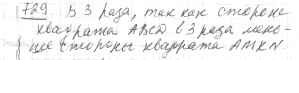 729 В 3 раза, так как сторона
квадрата ABCD в 3 раза мень-
ше стороны квадрата AMKN.